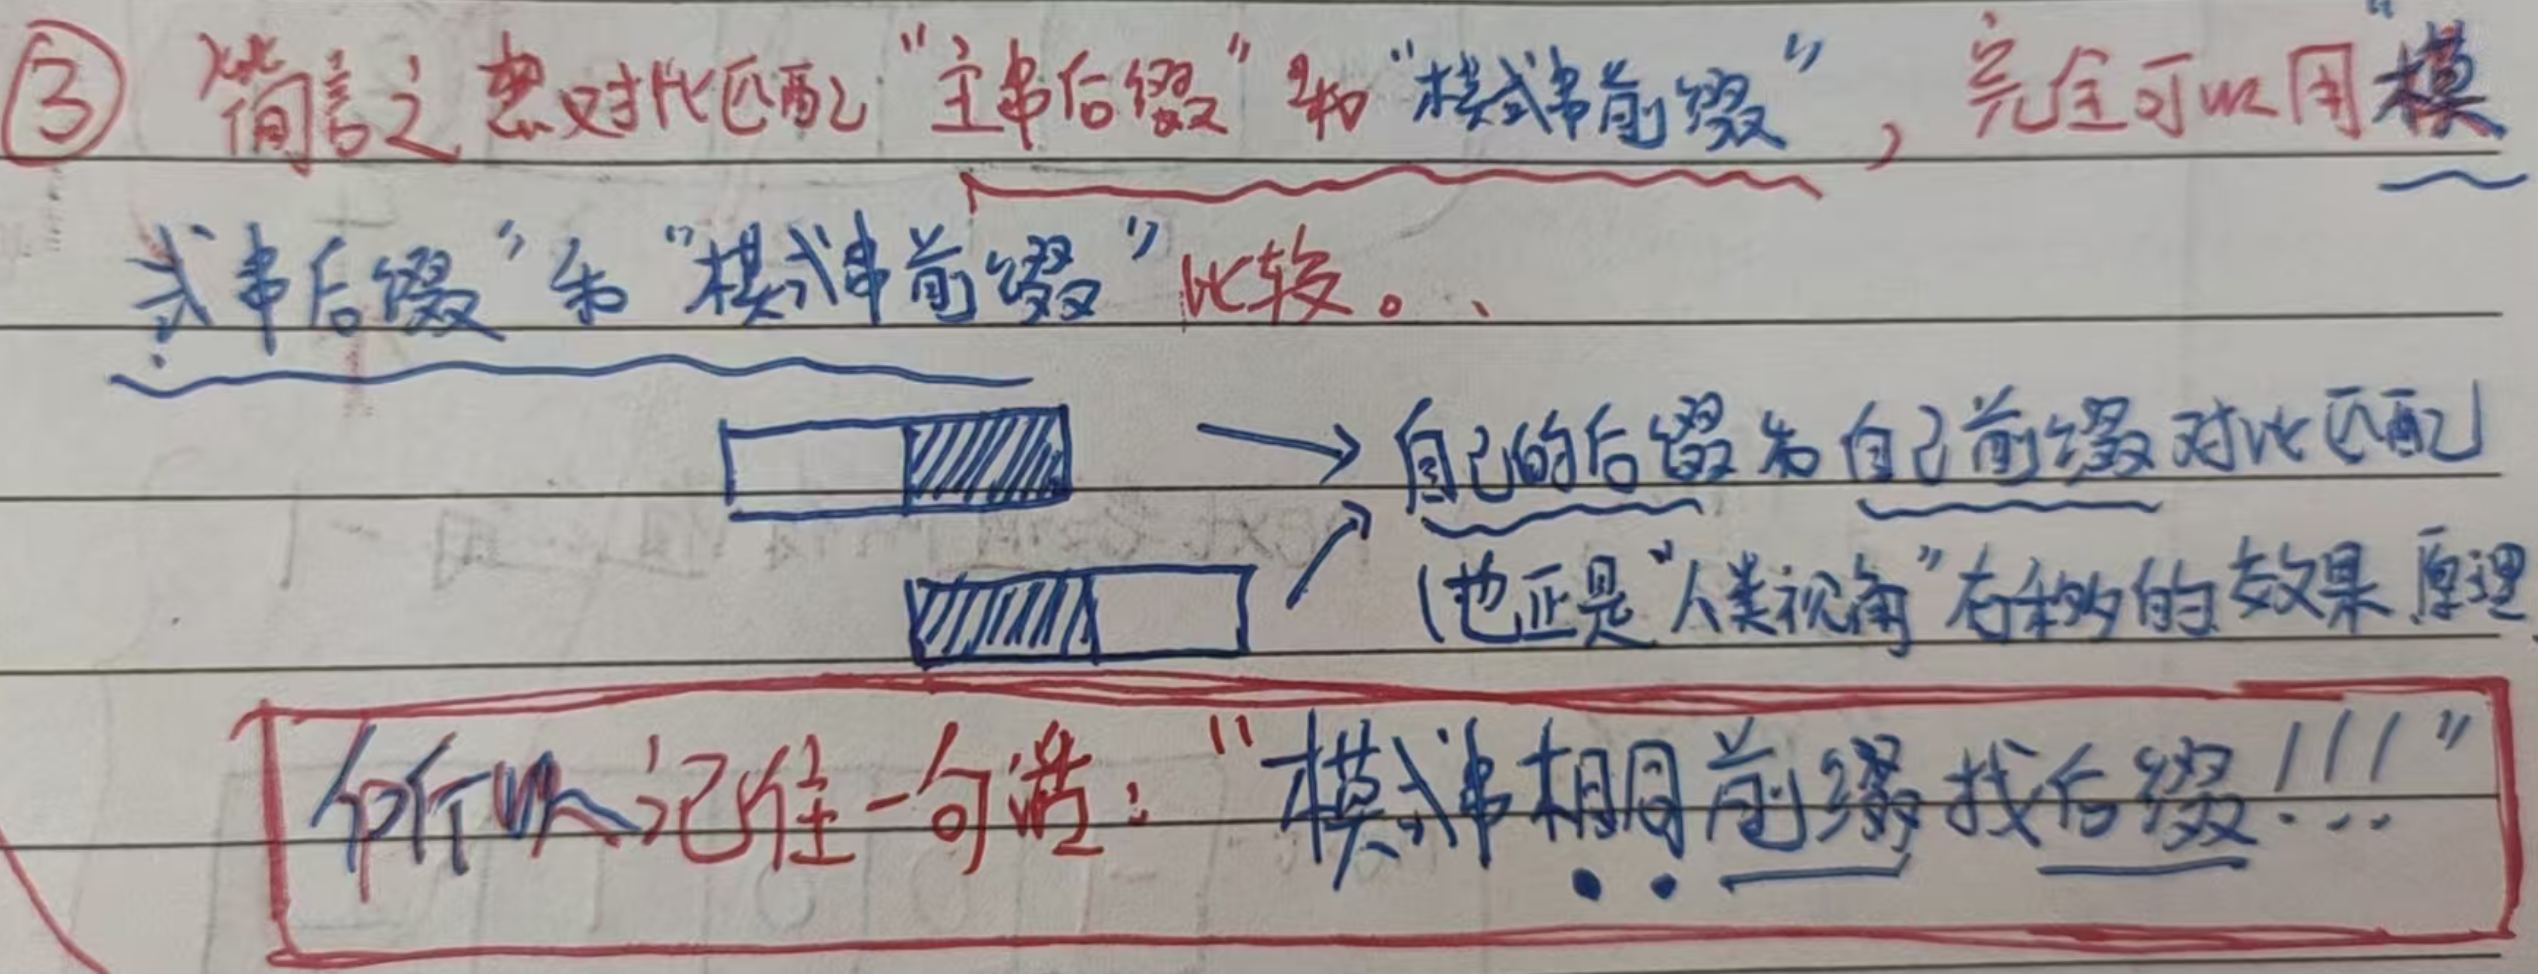 ③ 简言之想对比匹配"主串后缀"和"模式串前缀",完全可以用"模
式串后缀"和"模式串前缀"比较。
自己的后缀和自己前缀对比匹配
(也正是"人类视角"右移的效果原理
所以记住一句话:"模式串相同前缀找后缀!!!"